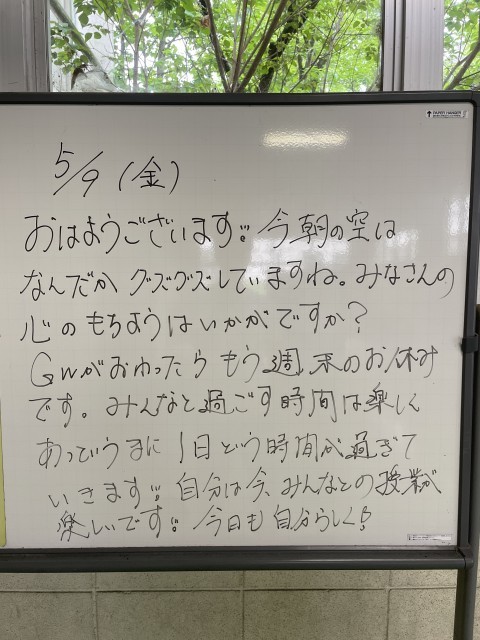 5/9 (金)
おはようございます!! 今朝の空は
なんだか グズグズしていますね。みなさんの
心のもちようはいかがですか?
GWがおわったら もう週末のお休み
です。みんなと過ごす時間は楽しく
あっというまに 1日という時間が過ぎて
いきます!! 自分は今、みんなとの授業が
楽しいです!! 今日も自分らしく!
PAPER HANGER